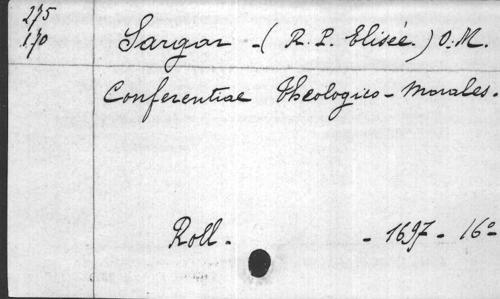 275
170
Sargar - (R. P. Elisée.) O. M.
Conferentiae Theologico - Morales.
Roll. - 1697 - 16°